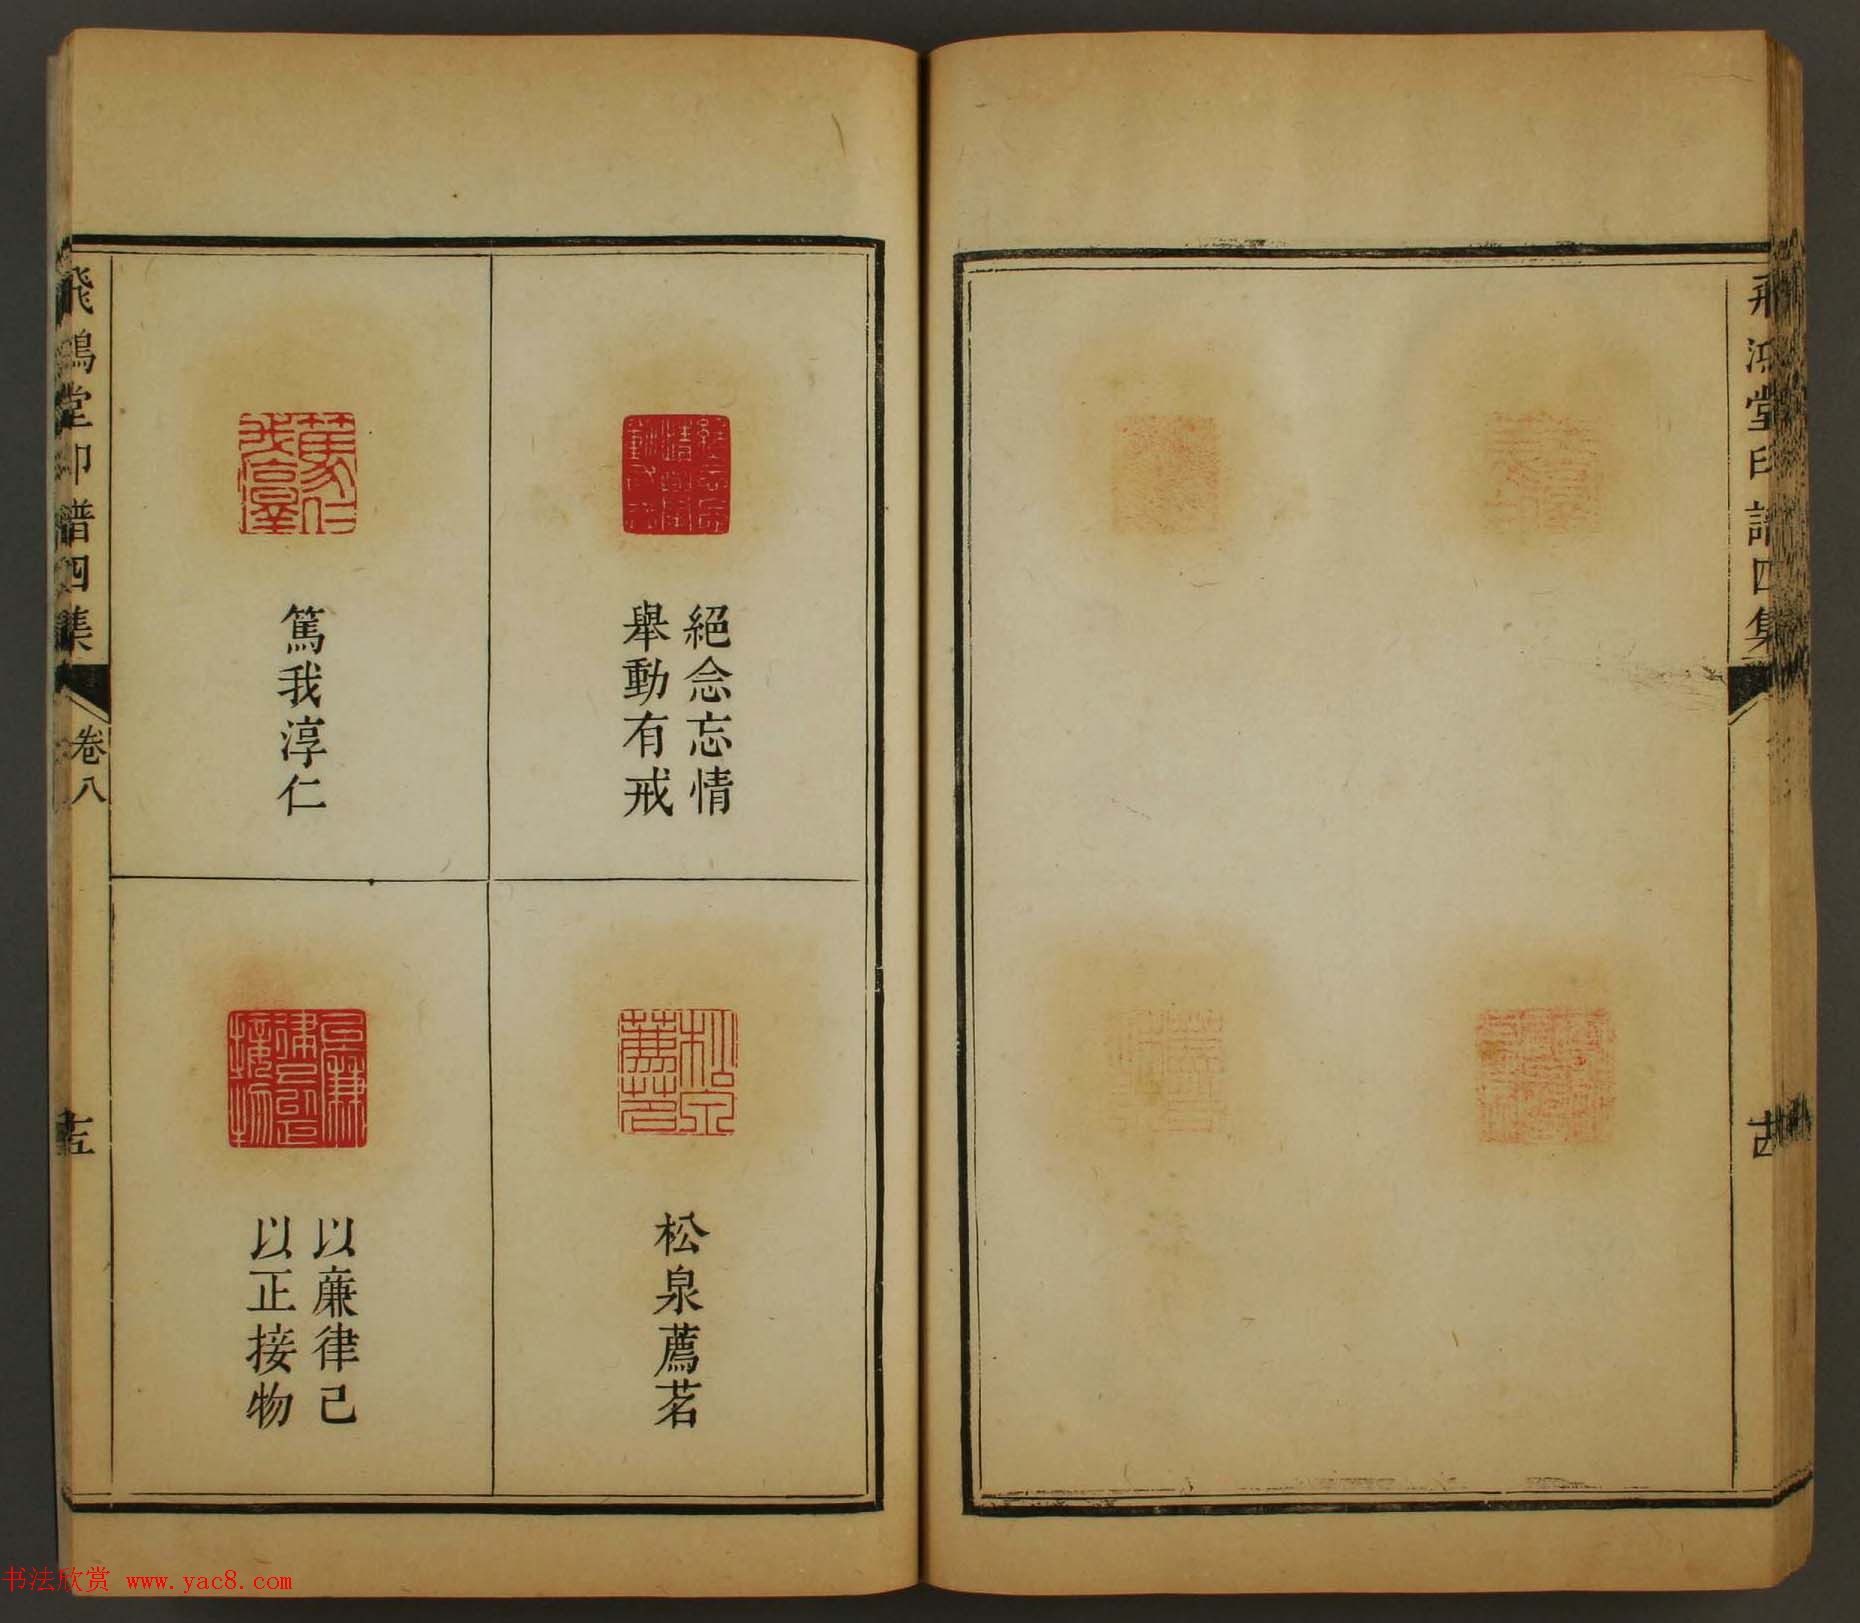 飛鴻堂印譜四集
絕念忘情
舉動有戒
篤我淳仁
松泉薦茗
以廉律己
以正接物
飛鴻堂印譜四集
卷八
书法欣赏 www.yac8.com